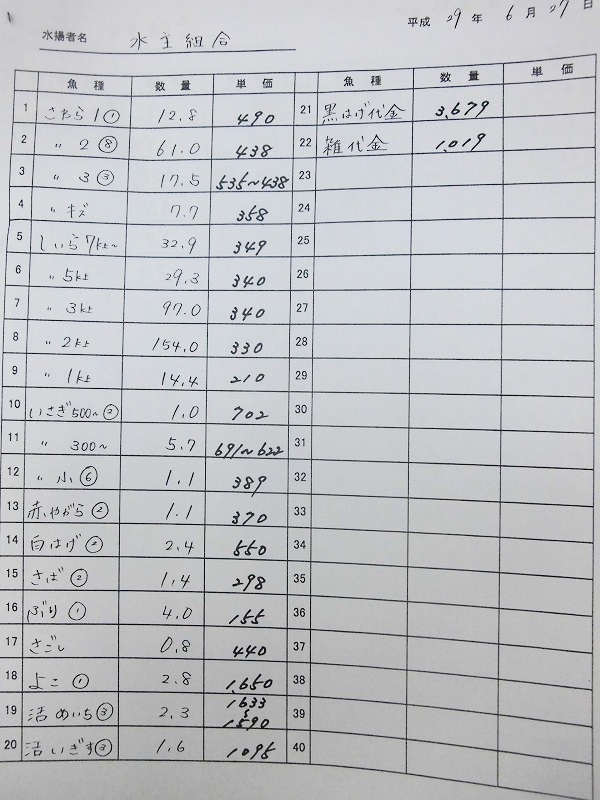 平成 29 年 6 月 27 日
水揚者名 水主組合
魚種 数量 単価 魚種 数量 単価
1 さわら1① 12.8 490 21 黒はげ代金 3,679
2 〃 2⑧ 61.0 438 22 雑代金 1,019
3 〃 3③ 17.5 535~438 23
4 〃 キズ 7.7 358 24
5 しいら7k上~ 32.9 349 25
6 〃 5k上 29.3 340 26
7 〃 3k上 97.0 340 27
8 〃 2k上 154.0 330 28
9 〃 1k上 14.4 210 29
10 いさぎ500~② 1.0 702 30
11 〃 300~ 5.7 691~622 31
12 〃 小⑥ 1.1 389 32
13 赤やがら② 1.1 370 33
14 白はげ② 2.4 550 34
15 さば② 1.4 298 35
16 ぶり① 4.0 155 36
17 さごし 0.8 440 37
18 よこ① 2.8 1,650 38
19 活めいち③ 2.3 1633~1590 39
20 活いぎす③ 1.6 1095 40